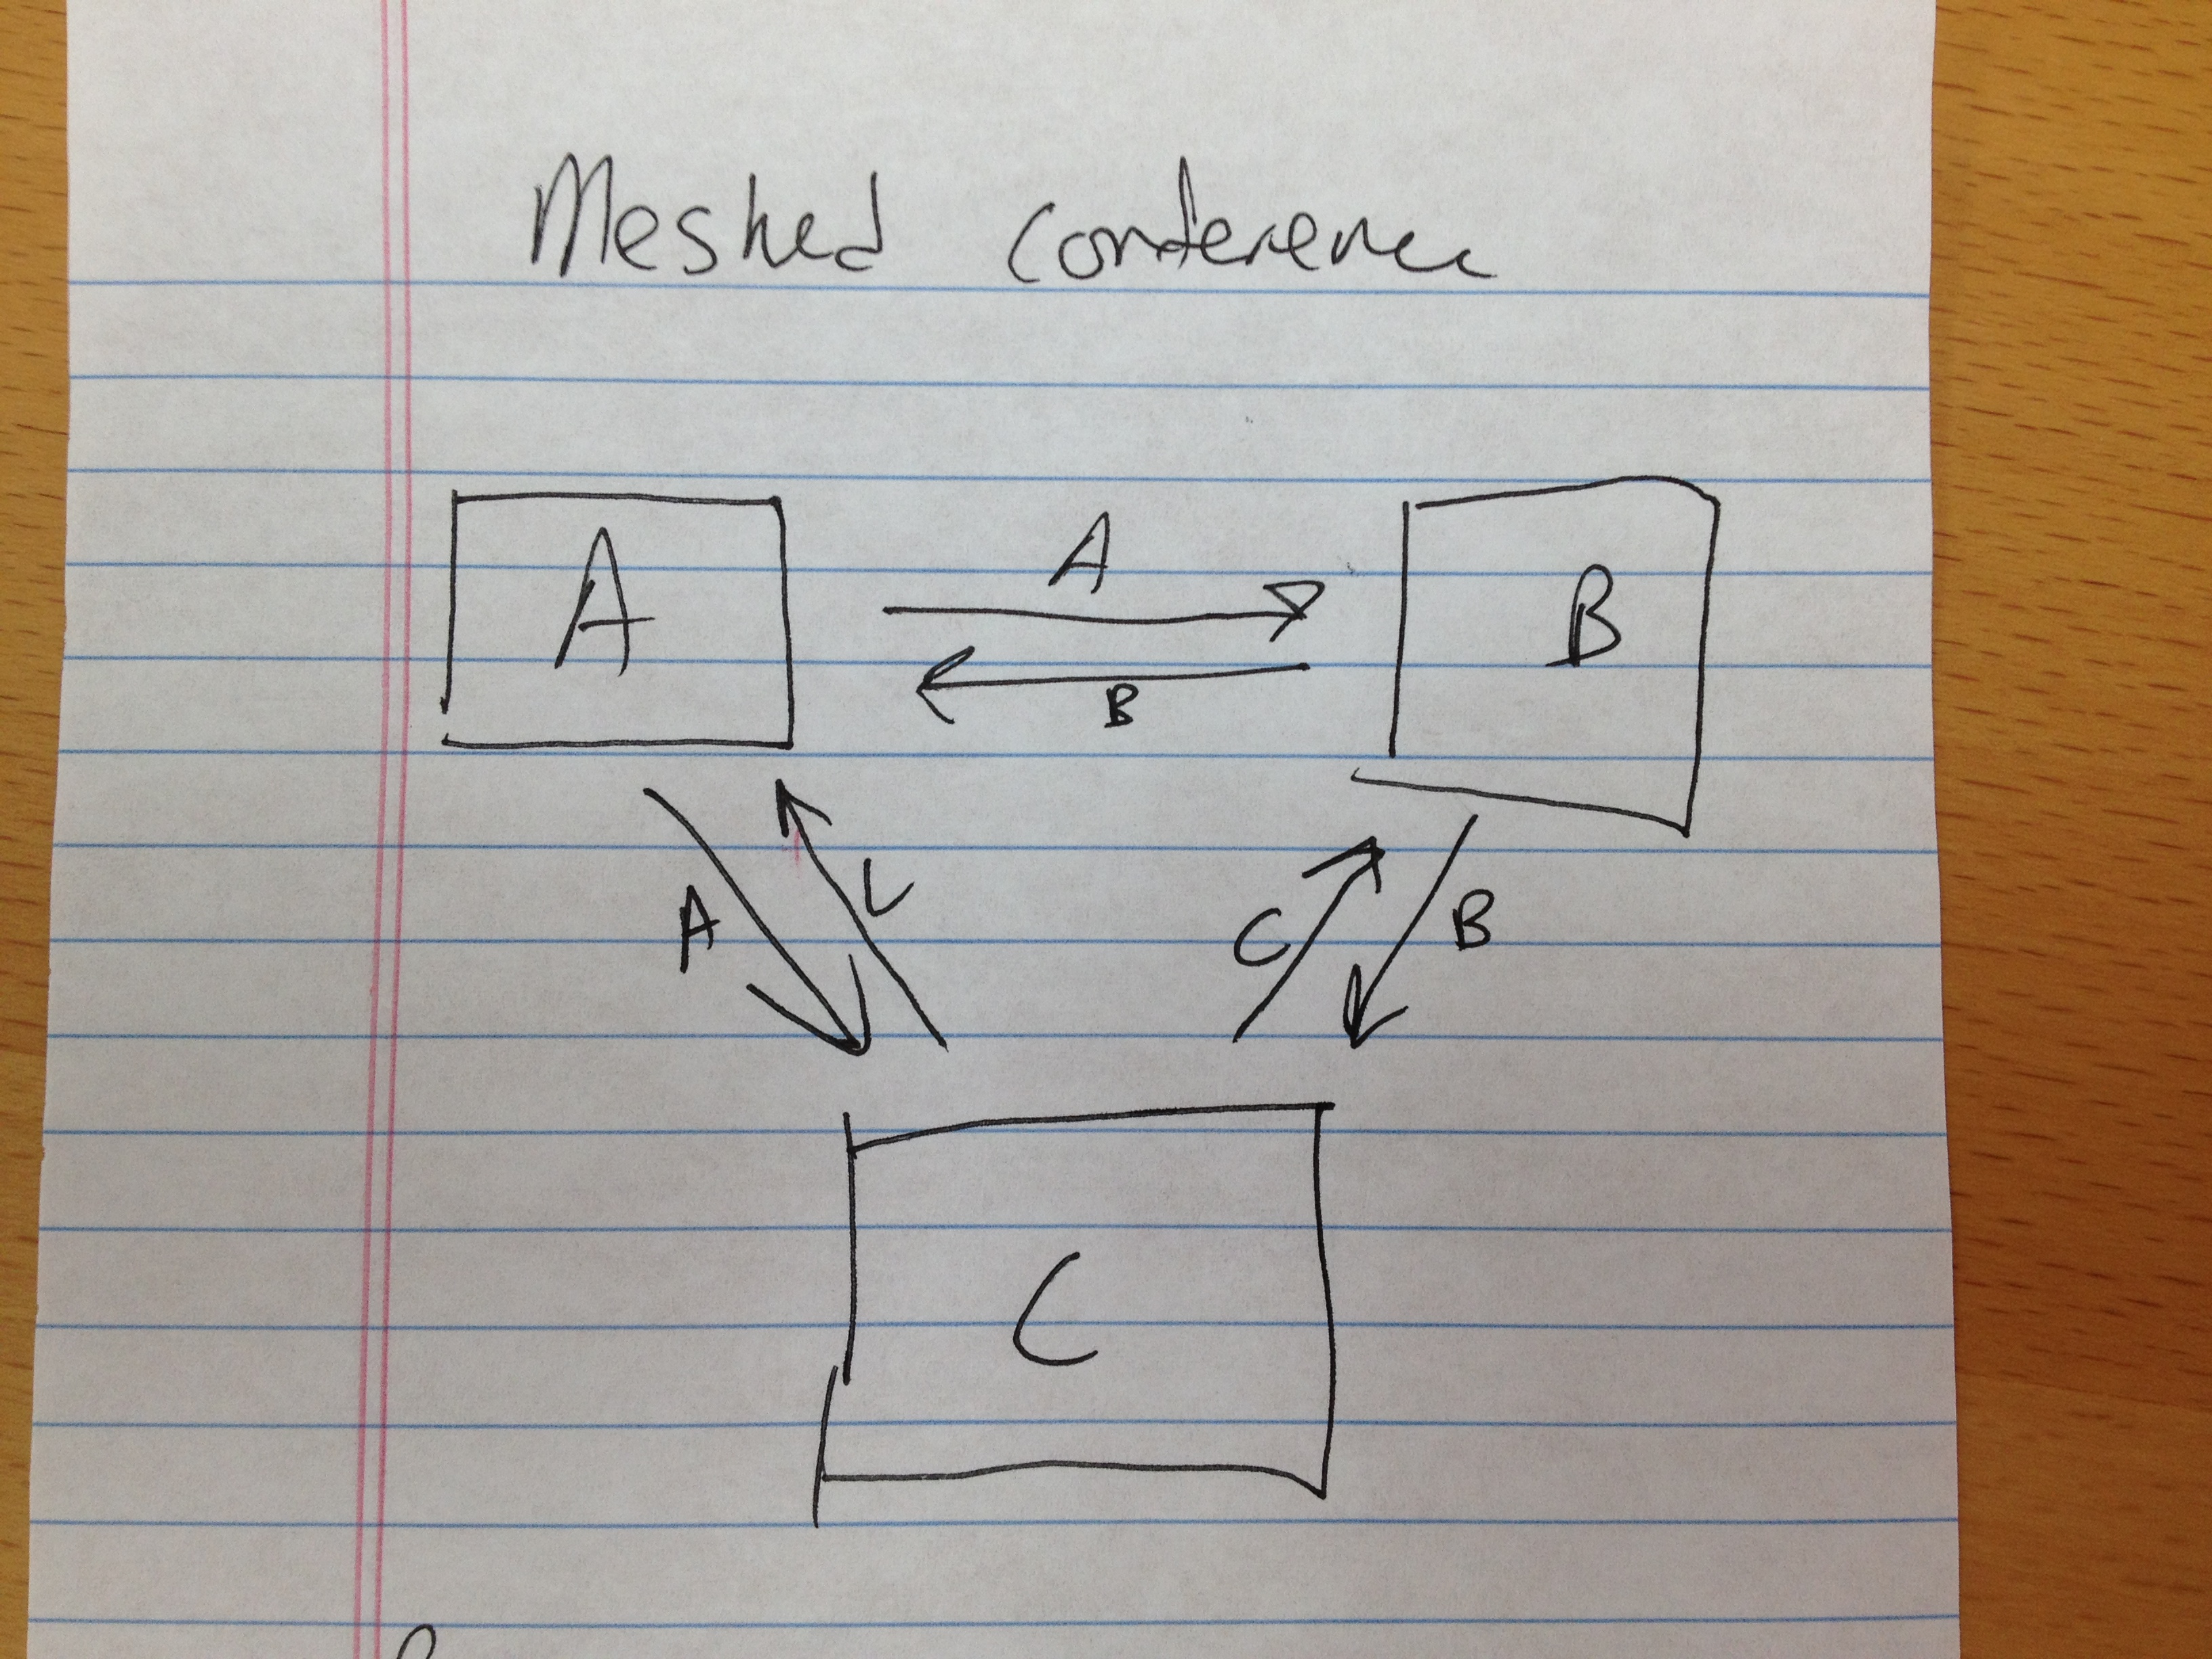 Meshed Conference
A
A
B
B
A
C
C
B
C